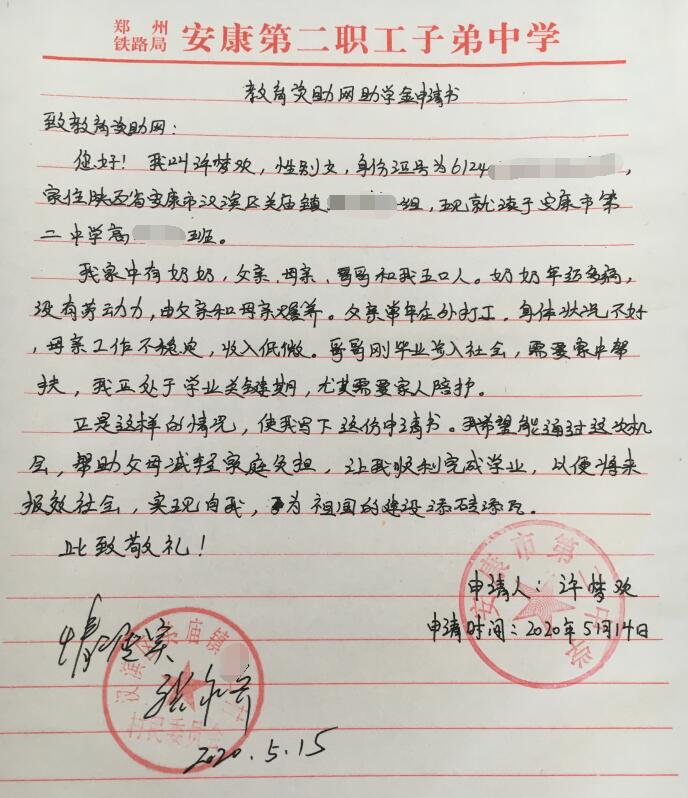 郑州铁路局 安康第二职工子弟中学
教育资助网助学金申请书
致教育资助网：
您好！我叫许梦欢，性别女，身份证号为6124
家住陕西省安康市汉滨区关庙镇 组，现就读于安康市第
二中学高 班。
我家中有奶奶，父亲、母亲、哥哥和我五口人。奶奶年迈多病，
没有劳动力，由父亲和母亲赡养。父亲常年在外打工，身体状况不好
，母亲工作不稳定，收入低微。哥哥刚毕业步入社会，需要家中帮
扶，我正处于学业关键期，尤其需要家人陪护。
正是这样的情况，使我写下这份申请书。我希望能通过这次机
会，帮助父母减轻家庭负担，让我顺利完成学业，以便将来
报效社会，实现自我，为祖国的建设添砖添瓦。
此致敬礼！
申请人：许梦欢
申请时间：2020年5月14日
安康市第二中学
情况属实
汉滨区关庙镇
村民委员会
2020.5.15